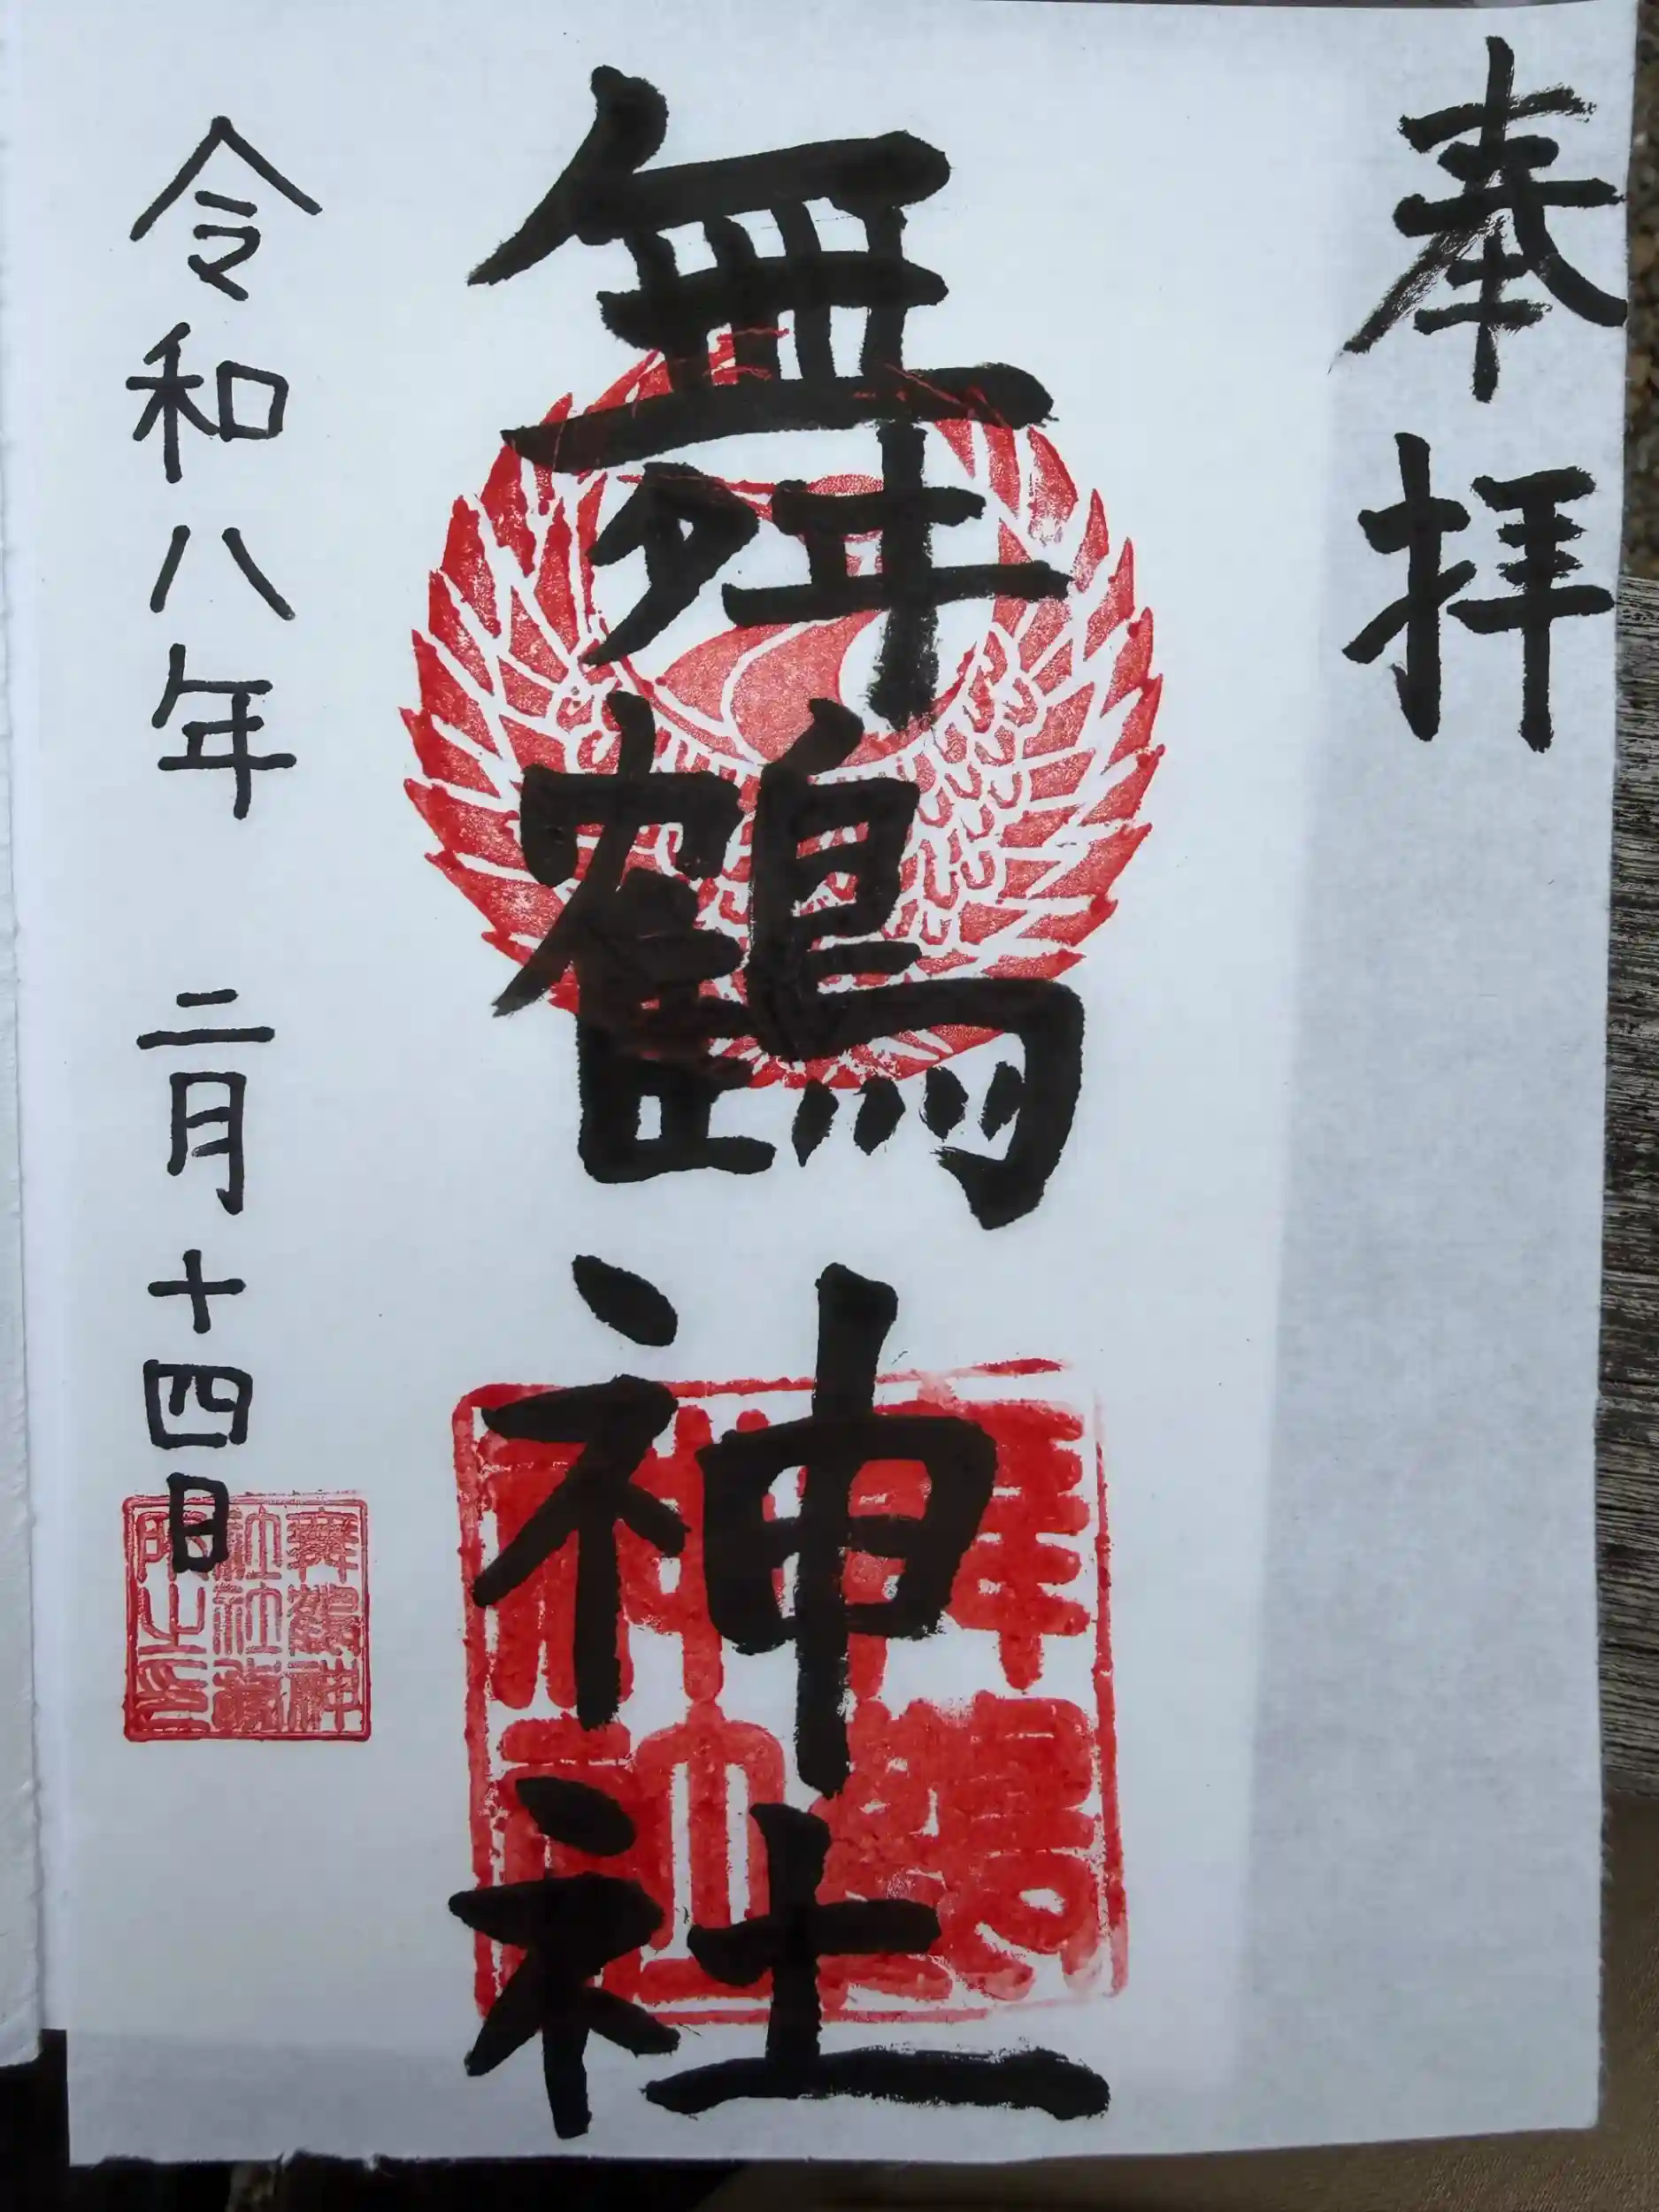 奉拝
舞鶴神社
令和八年 二月十四日
舞鶴神
社社務
所之印